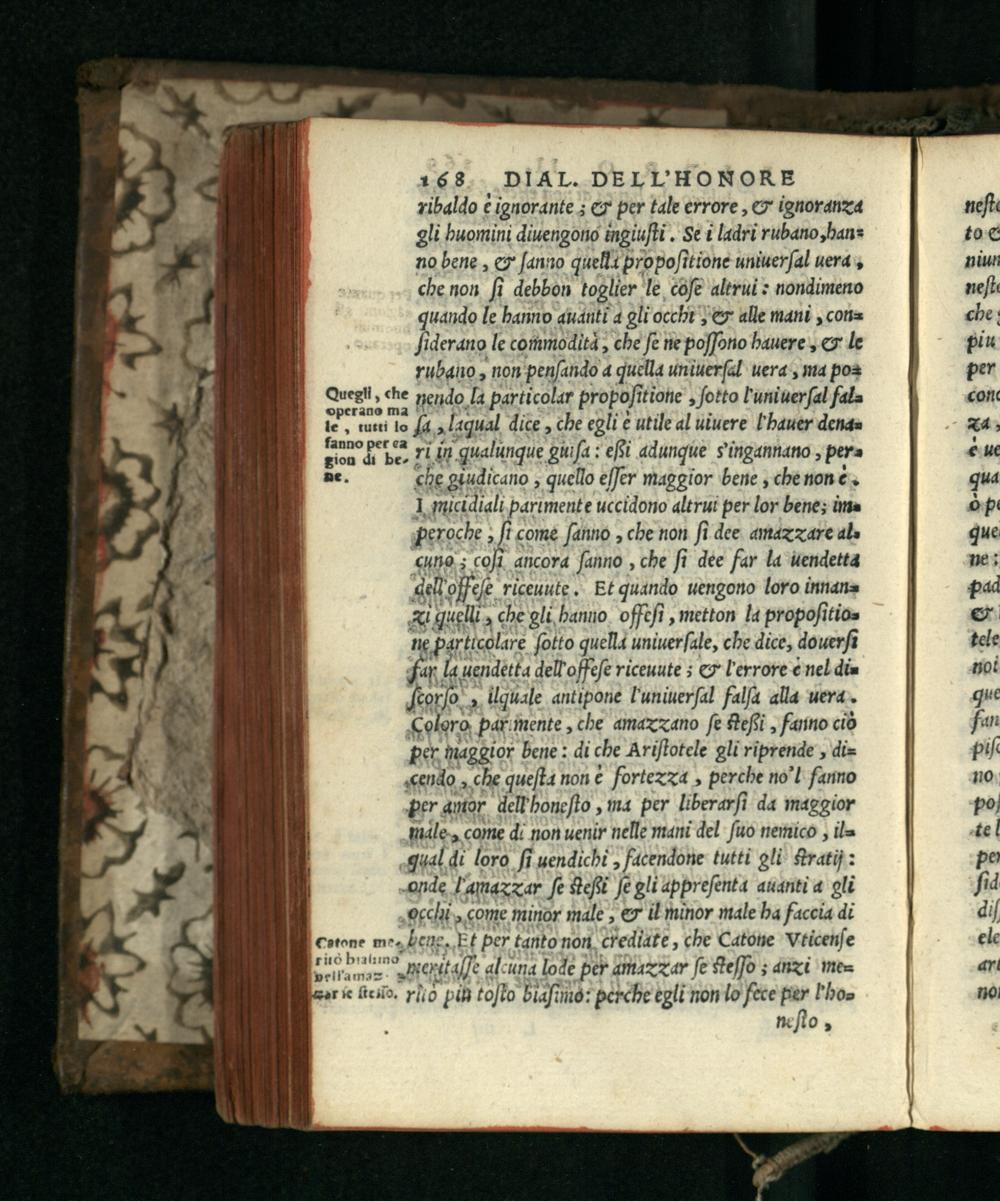 168 DIAL. DELL'HONORE
ribaldo è ignorante; & per tale errore, & ignoranza
gli huomini diuengono ingiuſti. Se i ladri rubano, han=
no bene, & ſanno quella propoſitione uniuerſal uera,
che non ſi debbon toglier le coſe altrui: nondimeno
quando le hanno auanti a gli occhi, & alle mani, con=
ſiderano le commodità, che ſe ne poſſono hauere, & le
rubano, non penſando a quella uniuerſal uera, ma po=
nendo la particolar propoſitione, ſotto l'uniuerſal fal=
ſa, laqual dice, che egli è utile al uiuere l'hauer dena=
ri in qualunque guiſa: eßi adunque s'ingannano, per=
che giudicano, quello eſſer maggior bene, che non è.
I micidiali parimente uccidono altrui per lor bene; im=
peroche, ſi come ſanno, che non ſi dee amazzare al=
cuno; coſi ancora ſanno, che ſi dee far la uendetta
dell'offeſe riceuute. Et quando uengono loro innan=
zi quelli, che gli hanno offeſi, metton la propoſitio=
ne particolare ſotto quella uniuerſale, che dice, douerſi
far la uendetta dell'offeſe riceuute; & l'errore è nel di=
ſcorſo, ilquale antipone l'uniuerſal falſa alla uera.
Coloro parimente, che amazzano ſe ſteßi, fanno ciò
per maggior bene: di che Ariſtotele gli riprende, di=
cendo, che queſta non è fortezza, perche no'l fanno
per amor dell'honeſto, ma per liberarſi da maggior
male, come di non uenir nelle mani del ſuo nemico, il=
qual di loro ſi uendichi, facendone tutti gli ſtratij:
onde l'amazzar ſe ſteßi ſe gli appreſenta auanti a gli
occhi, come minor male, & il minor male ha faccia di
bene. Et per tanto non crediate, che Catone Vticenſe
meritaſſe alcuna lode per amazzar ſe ſteſſo; anzi me=
ritò più toſto biaſimo: perche egli non lo fece per l'ho=
neſto,
Quegli, che
operano ma
le, tutti lo
fanno per ca
gion di be-
ne.
Catone me-
ritò biaſimo
nell'amaz-
zar ſe ſteſſo.
neſto
to &
niun
neſto
che
piu
per
conc
za,
è ue
qua
ò pe
que
ne:
pad
&
tele
noi
que
fan
piſc
no
poſ
te l
per
ſid
diſ
ele
art
non